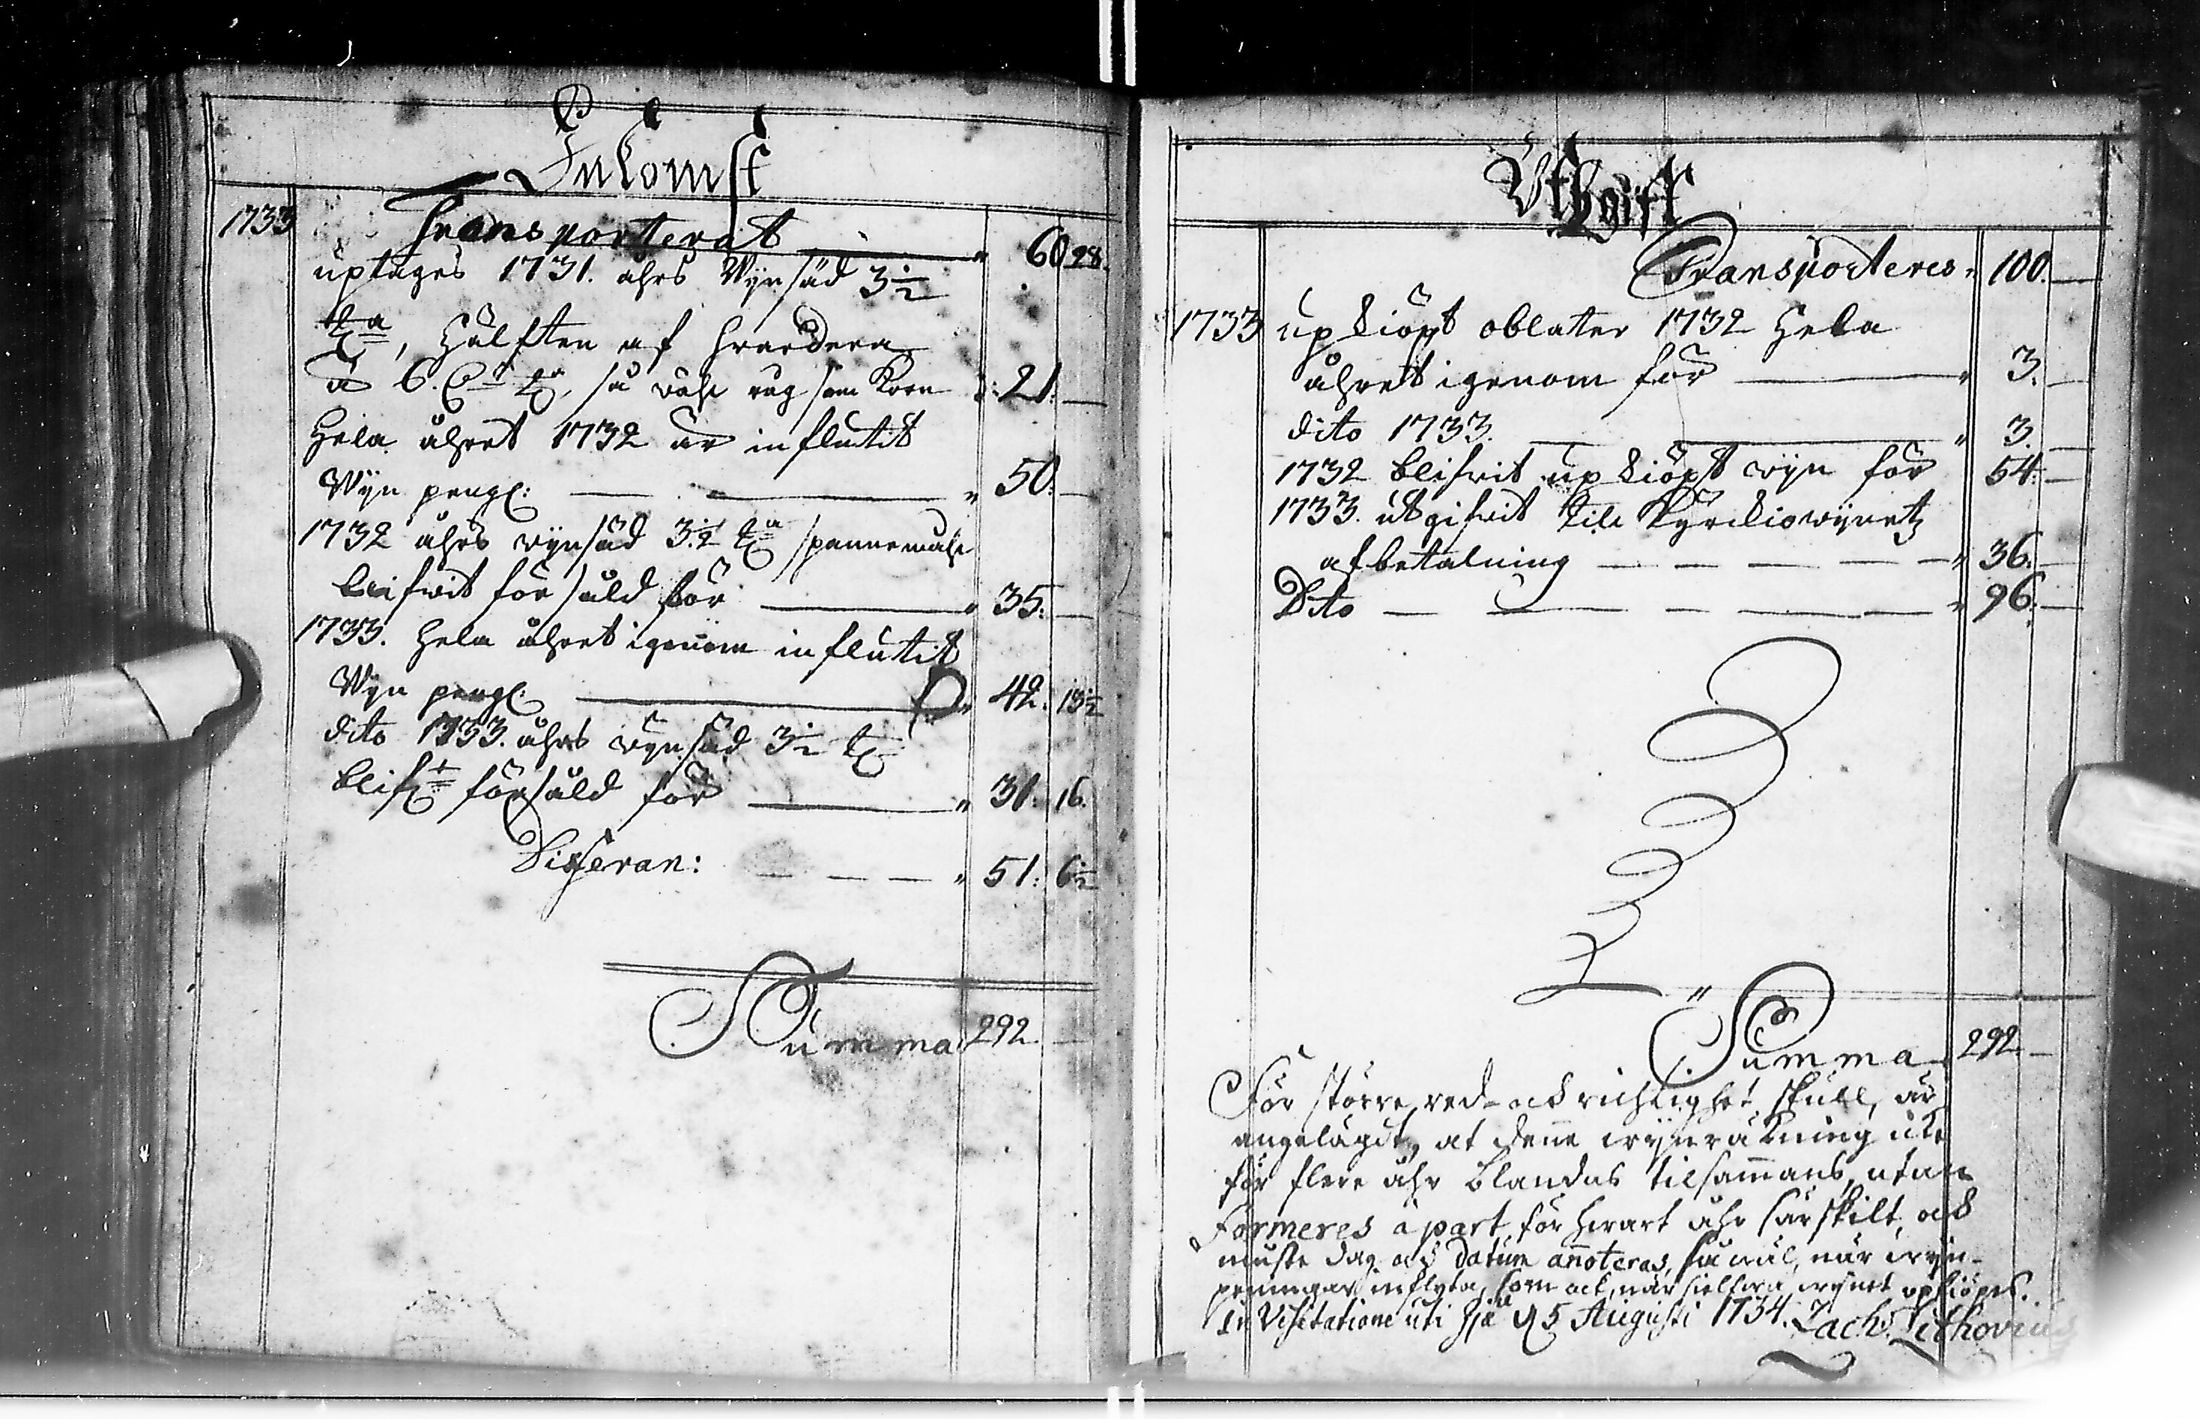 Inkomst
1733 Transporterat " 60 28.
uptages 1731. åhrs Wynsäd 3 1/2
t:a, Hälften af hvardera
à 6. t:a, så wähl råg som Korn 21. —
Hela åhret 1732 är influtit
Wyn peng: " 50: —
1732 åhrs wynsäd 3 1/2 t:a spannemåhl
blifwit försåld för " 35: —
1733. Hela åhret igenom influtit
Wyn peng: " 42. 13 1/2
dito 1733. åhrs wynsäd 3 1/2 t:
blif:t försåld för " 31. 16.
" 51: 6 1/2
Summa 292. —
Uthgift
Transporteres " 100. —
1733 upkiöpt oblater 1732 Hela
åhret igenom för " 3. —
dito 1733. " 3. —
1732 blifwit upkiöpt wyn för 54. —
1733. utgifwit till Kyrckiowynetz
afbetalning " 36. —
Dito " 96. —
Summa 292. —
För större red- och richtighet skull, är
angelägit, at denne wynräkning icke
för flere åhr blandas tilsammans, utan
Formeres à part för hwart åhr särskilt, och
måste dag och datum annoteras, så wäl, när wyn-
penningar inflyta, som ock, när sielfwa wynet upkiöpes.
In Visitatione uti d 5 Augusti 1734. Zach. Lithovius